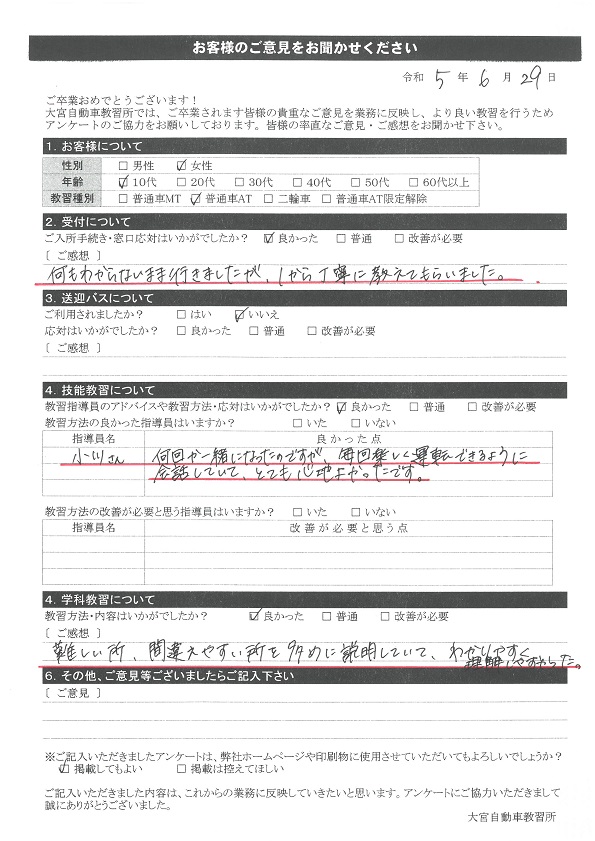 お客様のご意見をお聞かせください
令和 5 年 6 月 29 日
ご卒業おめでとうございます！
大宮自動車教習所では、ご卒業されます皆様の貴重なご意見を業務に反映し、より良い教習を行うため
アンケートのご協力をお願いしております。皆様の率直なご意見・ご感想をお聞かせ下さい。
1. お客様について
性別 □ 男性 ☑ 女性
年齢 ☑ 10代 □ 20代 □ 30代 □ 40代 □ 50代 □ 60代以上
教習種別 □ 普通車MT ☑ 普通車AT □ 二輪車 □ 普通車AT限定解除
2. 受付について
ご入所手続き・窓口応対はいかがでしたか？ ☑ 良かった □ 普通 □ 改善が必要
〔 ご感想 〕
何もわからないまま行きましたが、1から丁寧に教えてもらいました。
3. 送迎バスについて
ご利用されましたか？ □ はい ☑ いいえ
応対はいかがでしたか？ □ 良かった □ 普通 □ 改善が必要
〔 ご感想 〕
4. 技能教習について
教習指導員のアドバイスや教習方法・応対はいかがでしたか？ ☑ 良かった □ 普通 □ 改善が必要
教習方法の良かった指導員はいますか？ □ いた □ いない
指導員名 良かった点
小川さん 何回か一緒になったのですが、毎回楽しく運転できるように
会話していて、とても心地よかったです。
教習方法の改善が必要と思う指導員はいますか？ □ いた □ いない
指導員名 改善が必要と思う点
4. 学科教習について
教習方法・内容はいかがでしたか？ ☑ 良かった □ 普通 □ 改善が必要
〔 ご感想 〕
難しい所、間違えやすい所を多めに説明していて、わかりやすく
理解しやすかった。
6. その他、ご意見等ございましたらご記入下さい
〔 ご意見 〕
※ご記入いただきましたアンケートは、弊社ホームページや印刷物に使用させていただいてもよろしいでしょうか？
☑ 掲載してもよい □ 掲載は控えてほしい
ご記入いただきました内容は、これからの業務に反映していきたいと思います。アンケートにご協力いただきまして
誠にありがとうございました。
大宮自動車教習所